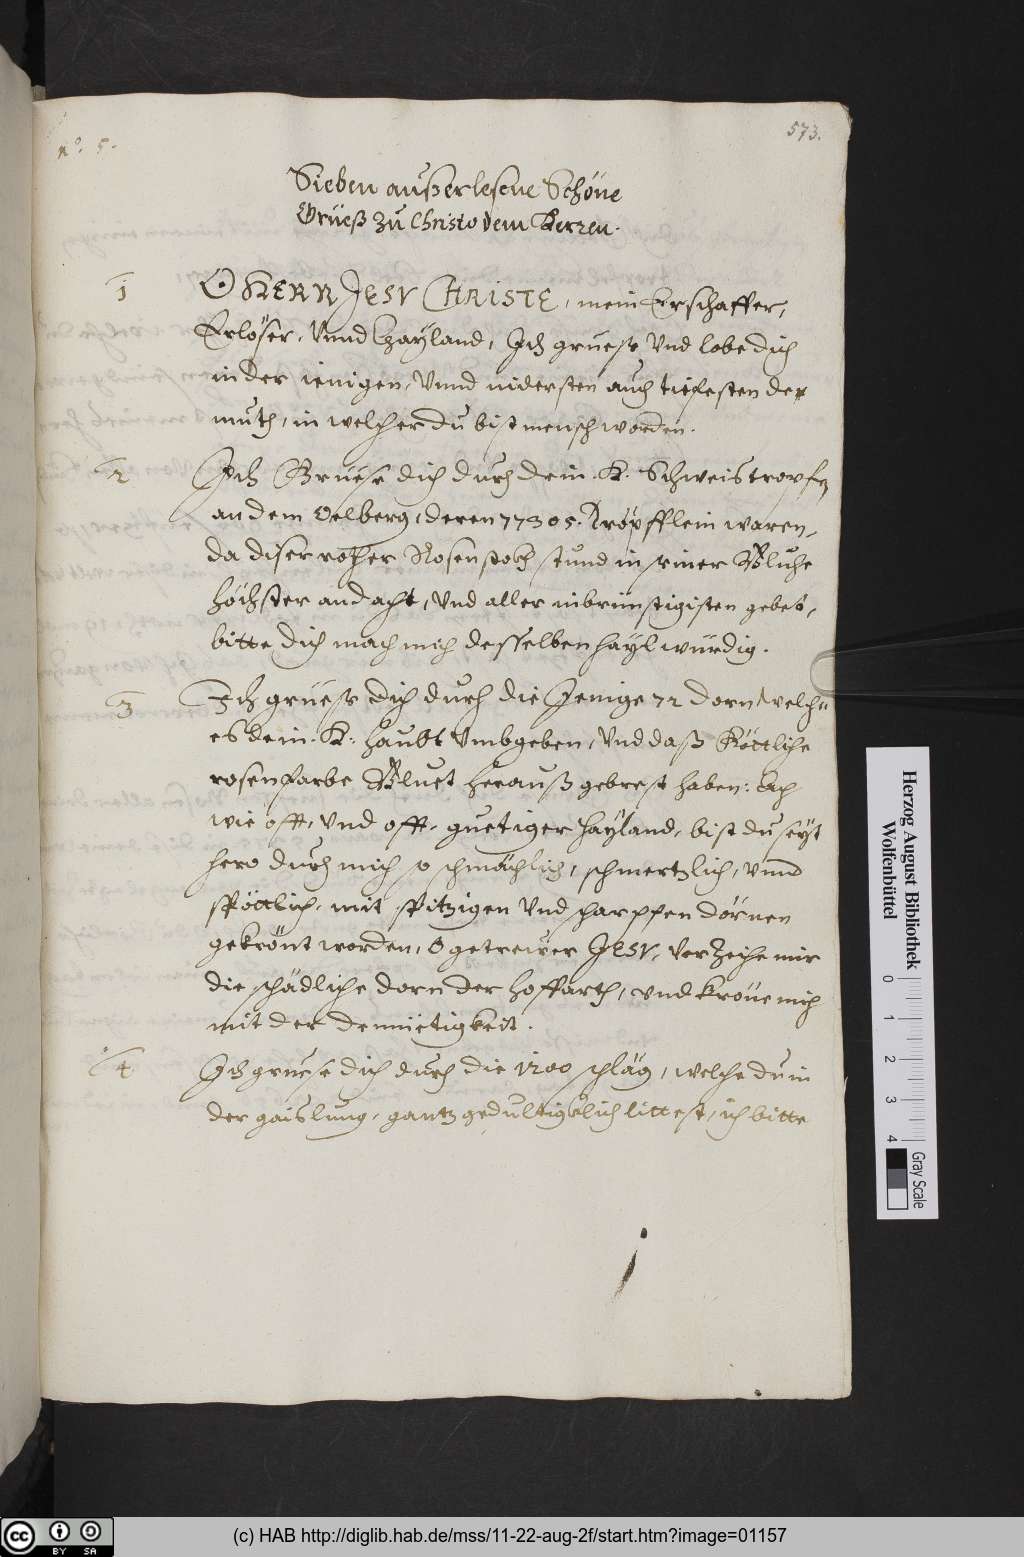 573.
nº. 5.
Sieben außerlesene Schöne
Grüeß zu Christo dem Herren.
1
O HERR JESV CHRISTE, mein Erschaffer,
Erlöser, Vnnd Hayland, Ich grueß Vnd lobe dich
in der ienigen, Vnnd nidersten auch tiefesten de„
muth, in welcher du bist mensch worden.
2
Ich Grüese dich durch dein. H. Schweistropfen
an dem Oelberg, deren 77305. Tröpfflein waren,
da diser rother Rosenstockh stund in seiner Bluhe
höchster andacht, Vnd aller inbrünstigisten gebet,
bitte dich mach mich desselben hayl würdig.
3
Ich grüeß dich durch die Jenige 72 dorn, welch„
es dein. H: haubt Vmbgeben, Vnd daß Köttliche
rosenfarbe Bluet herauß gebrest haben: Ach
wie offt, Vnd offt, guetiger hayland, bist du seyt
hero durch mich so schmächlich, schmertzlich, vnnd
spöttlich, mit spitzigen Vnd scharpfen dörnen
gekrönt worden, O getrewer JESV, Verzeihe mir
die schädliche dorn der hoffarth, vnd kröne mich
mit der demüetigkeit.
4
Ich grüese dich durch die 1200 schläg, welche du in
der gaislung, gantz gedultigklich littest, ich bitte
Herzog August Bibliothek
Wolfenbüttel
0 1 2 3 4
Gray Scale
cc BY SA
(c) HAB http://diglib.hab.de/mss/11-22-aug-2f/start.htm?image=01157